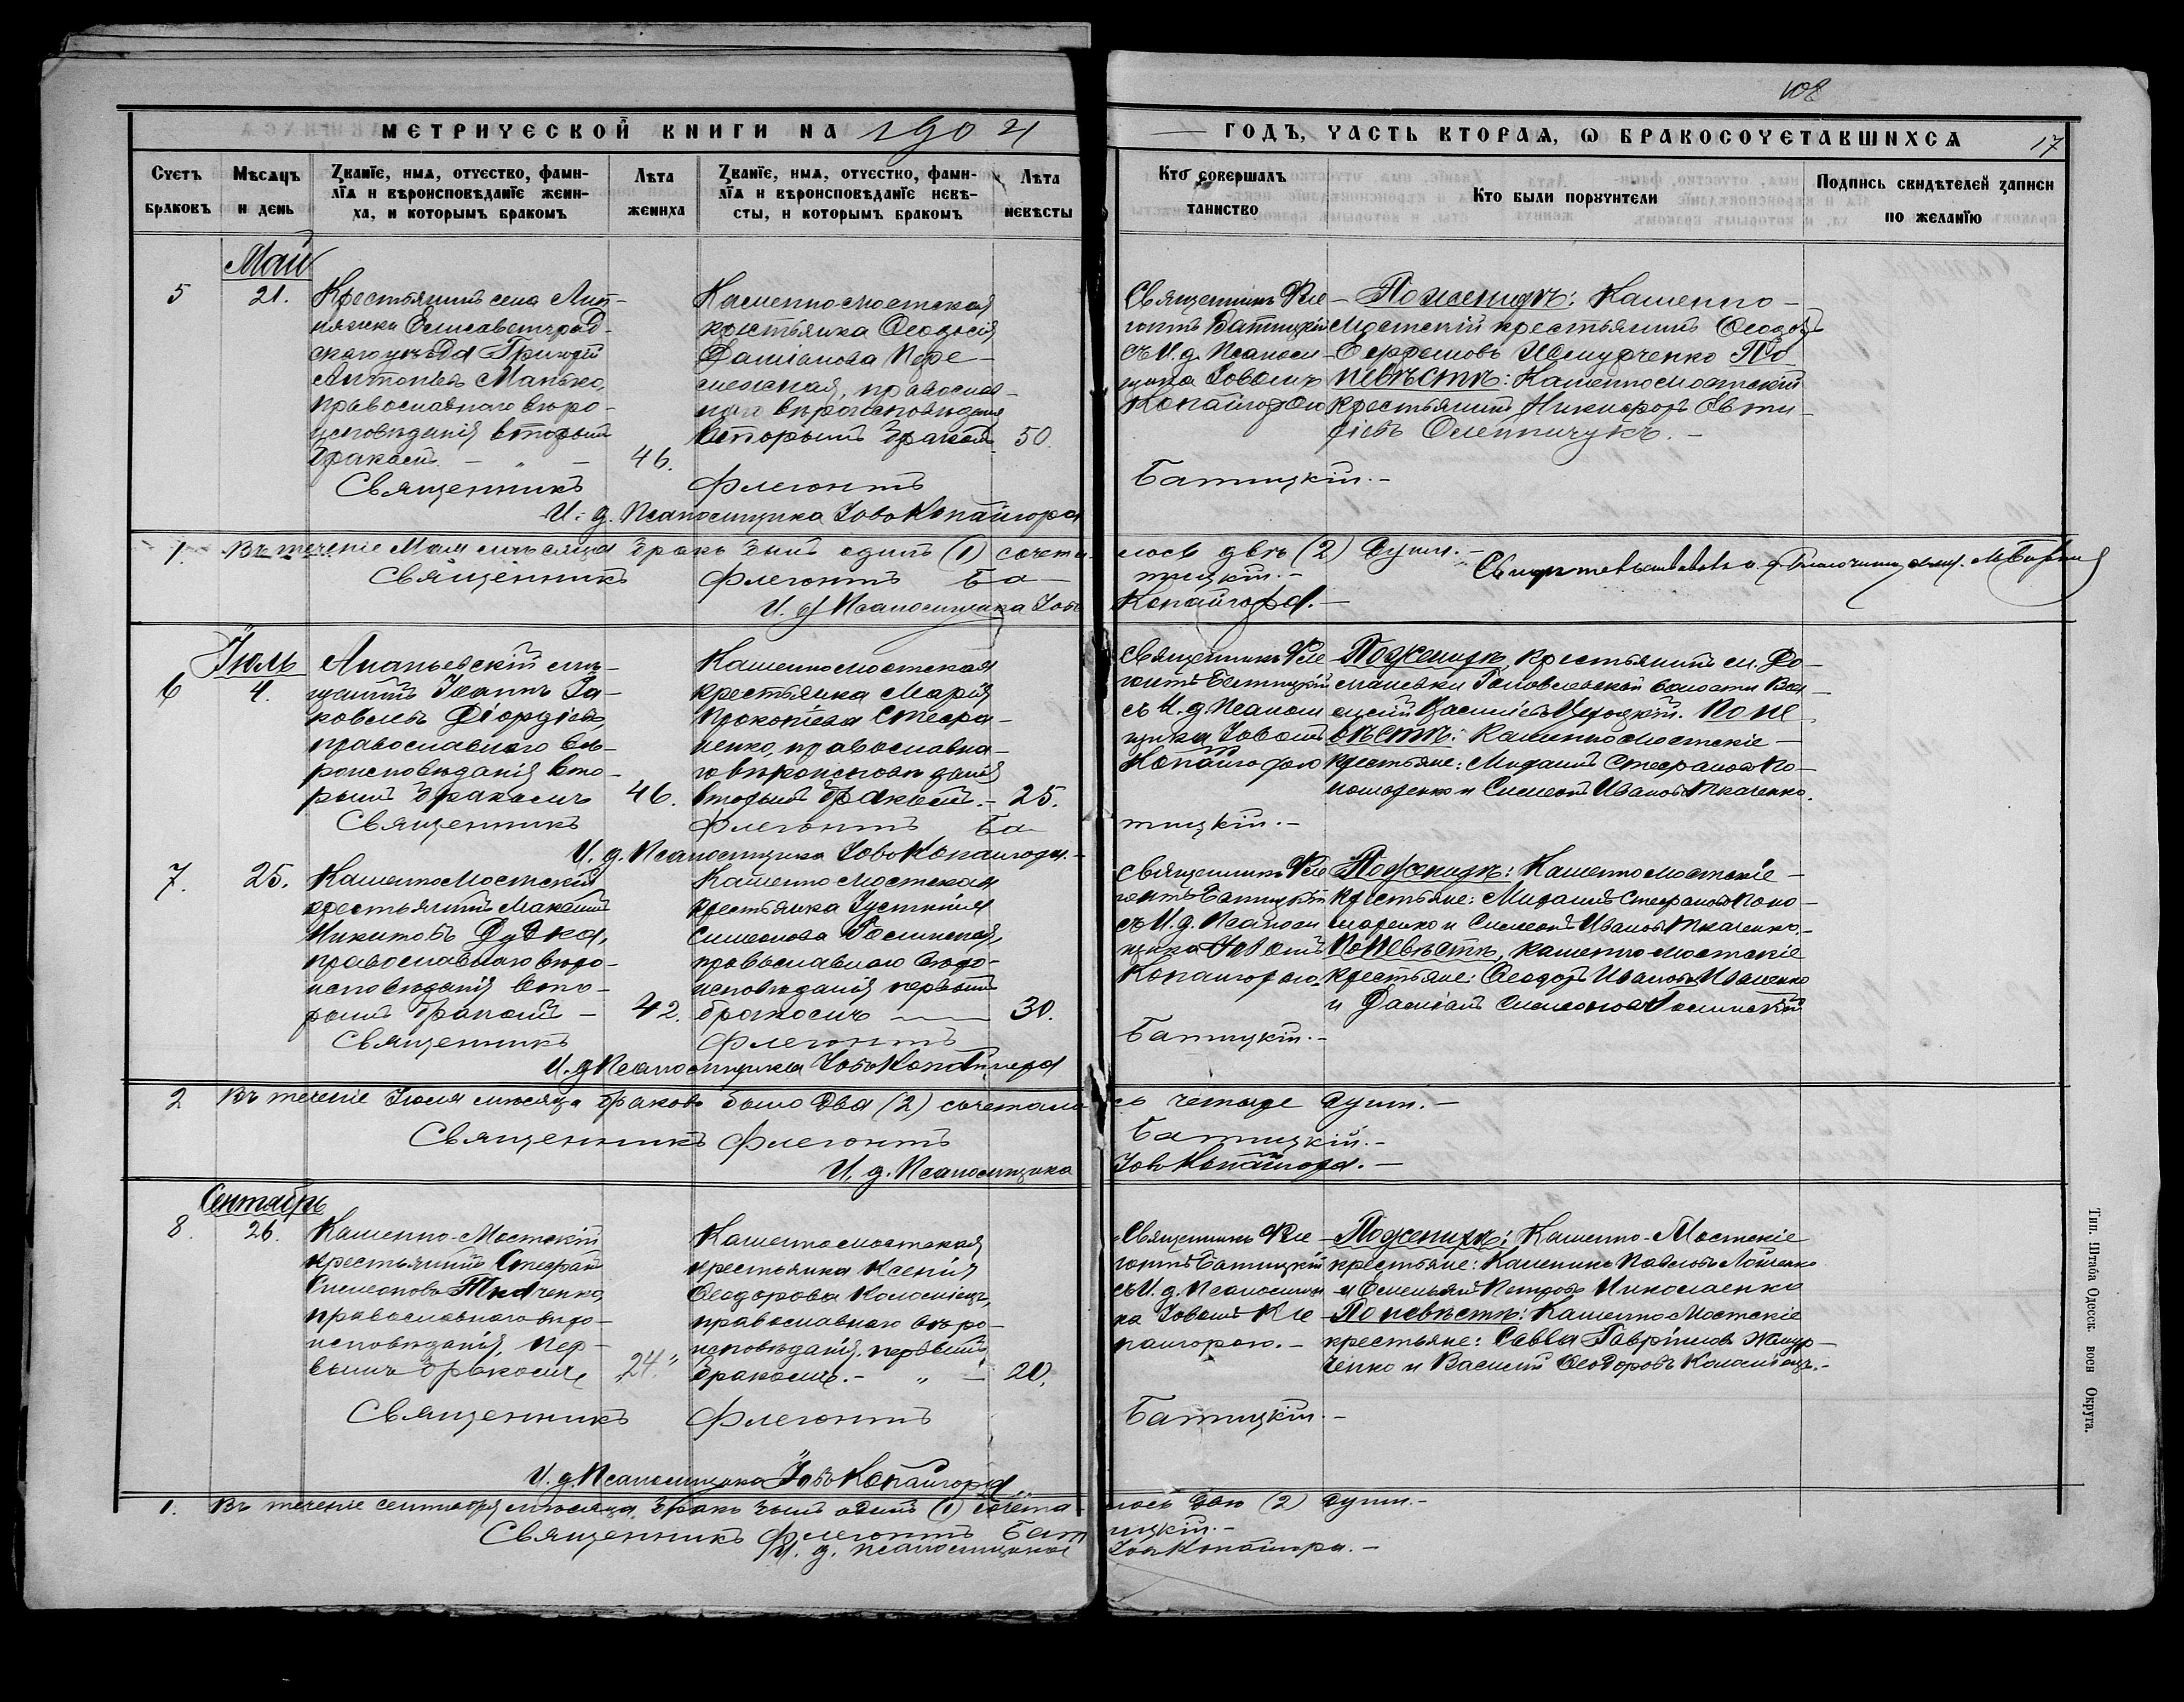 108
МЕТРИЧЕСКОЙ КНИГИ НА 1904
ГОДЪ, ЧАСТЬ ВТОРАѦ, Ѡ БРАКОСОЧЕТАВШИХСѦ 17
Счетъ браковъ
Мѣсѧцъ и день
Званїе, имѧ, отчество, фамилїѧ и вѣроисповѣданїе жениха, и которымъ бракомъ
Лѣта жениха
Званїе, имѧ, отчество, фамилїѧ и вѣроисповѣданїе невѣсты, и которымъ бракомъ
Лѣта невѣсты
Кто совершалъ таинство
Кто были поручители
Подпись свидѣтелей записи по желанїю
Май
5
21.
Крестьянинъ села Лип-
няжки Елисаветград-
скаго уѣзда Григорій
Антоніевъ Манько,
православнаго вѣро-
исповѣданія вторым
бракомъ. — „ —
46.
Каменномостская
крестьянка Ѳеодосія
Даміанова
православ-
наго вѣроисповѣданія
вторымъ бракомъ
50.
Священникъ Фле-
гонтъ Батицкій
съ И. д. Псаломщика Іовомъ
Копайгорою
По женихѣ: Каменно-
Мостскій крестьянинъ
По
невѣстѣ: Каменномостскій
крестьянинъ Никифоръ Евти-
фіевъ Олейничукъ. —
Священникъ Флегонтъ Батицкій. —
И. д. Псаломщика Іовъ Копайгора
1. Въ теченіе Мая мѣсяца бракъ былъ одинъ (1) сочета-лось двѣ (2) души. —
Священникъ Флегонтъ Батицкій. —
И. д. Псаломщика Іовъ Копайгора. —
Іюль
6
4.
Ананьевскій мѣ-
щанинъ Іоаннъ Іа-
ковлевъ Діордіевъ,
православнаго вѣ-
роисповѣданія вто-
рымъ бракомъ
46.
Каменномостская
крестьянка Марія
Прокопіева Стефа-
ненко, православна-
го вѣроисповѣданія
вторымъ бракомъ. —
25.
Священникъ Фле-
гонтъ Батицкій
съ И. д. Псалом-
щика Іовомъ
Копайгорою
По женихѣ, крестьянинъ
волости
Василіевъ
По не-
вѣстѣ: Каменномостскіе
крестьяне: Михаилъ Стефановъ По-
номаренко и Симеонъ Ивановъ Ткаченко.
Священникъ Флегонтъ Батицкій. —
И. д. Псаломщика Іовъ Копайгора. —
7.
25.
КаменноМостскій
крестьянинъ Макаій
Никитовъ Дудка,
православнаго вѣро-
исповѣданія вто-
рымъ бракомъ —
42.
КаменноМостская
крестьянка Іустинія
Симеонова
православнаго вѣро-
исповѣданія первымъ
бракомъ —
30.
Священникъ Фле-
гонтъ Батицкій
съ И. д. Псалом-
щика Іовомъ
Копайгорою.
По женихѣ: Каменномостскіе
крестьяне: Михаилъ Стефановъ Поно-
маренко и Симеонъ Ивановъ Ткаченко. —
По невѣстѣ, каменно-мостскіе
крестьяне: Ѳеодоръ Ивановъ Иваненко
и Даміанъ Симеоновъ
Священникъ Флегонтъ Батицкій. —
И. д. Псаломщика Іовъ Копайгора
2 Въ теченіе Іюля мѣсяца браковъ было два (2) сочеталось четыре души. —
Священникъ Флегонтъ Батицкій. —
И. д. Псаломщика Іовъ Копайгора. —
Сентябрь
8.
26.
Каменно-Мостскій
крестьянинъ Стефанъ
Симеоновъ Ткаченко,
православнаго вѣро-
исповѣданія, пер-
вымъ бракомъ
24.
Каменномостская
крестьянка Ксенія
Ѳеодорова Коломіецъ,
православнаго вѣро-
исповѣданія, первымъ
бракомъ. — „ —
20.
Священникъ Фле-
гонтъ Батицкій
съ И. д. Псаломщи-
ка Іовомъ Ко-
пайгорою. —
По женихѣ: Каменно-Мостскіе
крестьяне: Каленикъ Павловъ
и Емельянъ Петровъ Николаенко
По невѣстѣ: КаменноМостскіе
крестьяне: Савва Гавріиловъ
и Василій Ѳеодоровъ Коломіецъ. —
Священникъ Флегонтъ Батицкій. —
И. д. Псаломщика Іовъ Копайгора.
1. Въ теченіе сентября мѣсяца бракъ былъ одинъ (1) сочеталось двое (2) душъ. —
Священникъ Флегонтъ Батицкій. —
И. д. псаломщика Іовъ Копайгора. —
Тип. Штаба Одесск. воен Округа.